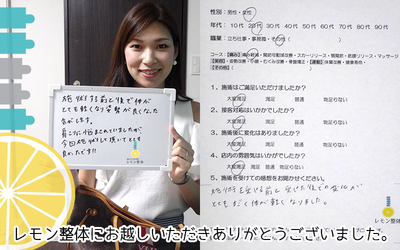 施術する前と後で体が
とても軽くなり姿勢が良くなった
気がします。
肩こりに悩まされていましたが、
今回施術して頂いてとても
良かったです!!
レモン整体
性別:男性・女性
年代:10代 20代 30代 40代 50代 60代 70代 80代 90代
職業:立ち仕事・事務職・その他
1. 施術はご満足いただけましたか?
大変満足 満足 普通 物足りない
2. 接客対応はいかがでしたか?
大変満足 満足 普通 物足りない
3. 施術後に変化はありましたか?
大変満足 満足 普通 物足りない
4. 店内の雰囲気はいかがでしたか?
大変満足 満足 普通 物足りない
5. 施術を受けての感想をお聞かせください。
施術を受ける前と受けた後での変化が
とても
体が軽くなりました。
レモン整体
レモン整体にお越しいただきありがとうございました。